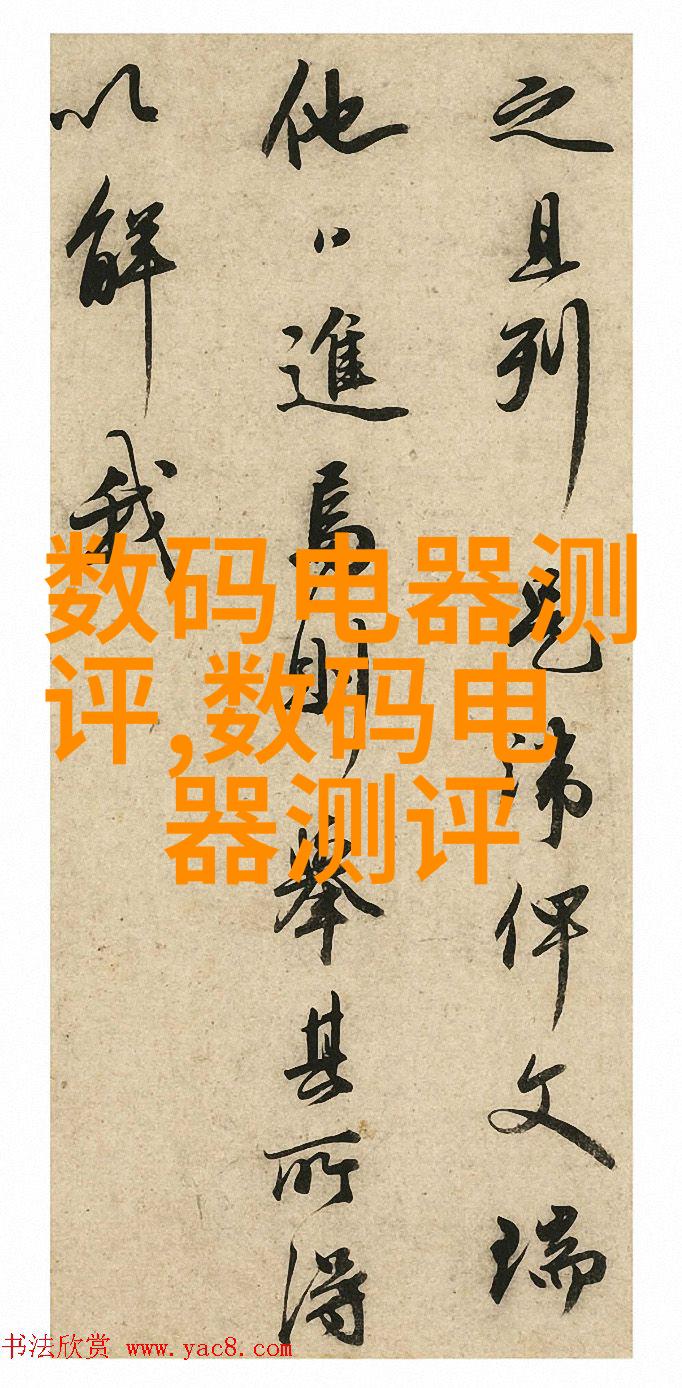 之且列諱俾文瑞
他進焉則舉其所得
以解我
数码电器测
评,数码电
器测评
书法欣赏 www.yac8.com